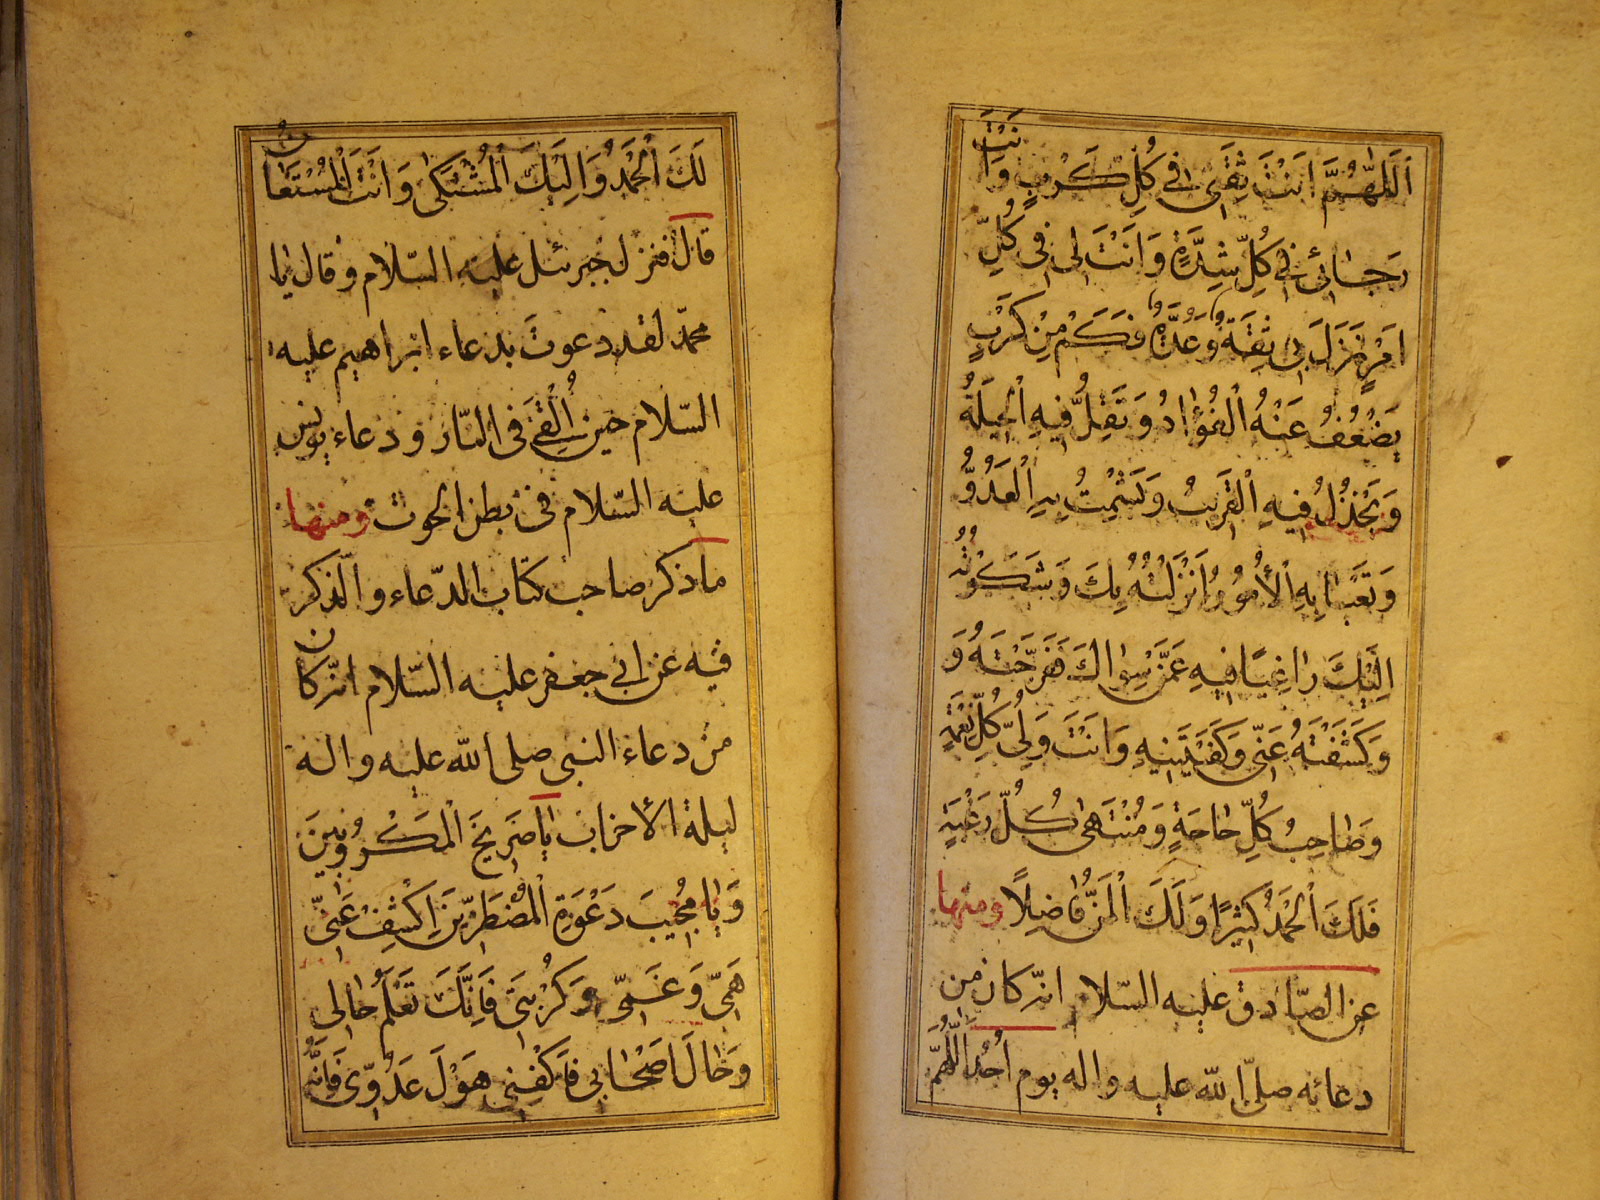 اَللّٰهُمَّ اَنْتَ ثِقَتِی فِی كُلِّ كَرْبٍ وَاَنْتَ
رَجٰائِی فِی كُلِّ شِدَّةٍ وَاَنْتَ لِی فِی كُلِّ
اَمْرٍ نَزَلَ بِی ثِقَةٌ وَعُدَّةٌ فَكَمْ مِنْ كَرْبٍ
يَضْعُفُ عَنْهُ الْفُؤٰادُ وَتَقِلُّ فِيهِ الْحِيلَةُ
وَيَخْذُلُ فِيهِ الْقَرِيبُ وَيَشْمَتُ بِهِ الْعَدُوُّ
وَتَعْيٰا بِهِ الْاُمُورُ اَنْزَلْتُهُ بِكَ وَشَكَوْتُهُ
اِلَيْكَ رٰاغِبًا فِيهِ عَمَّنْ سِوٰاكَ فَفَرَّجْتَهُ وَ
وَكَشَفْتَهُ عَنِّی وَكَفَيْتَنِيهِ وَاَنْتَ وَلِیُّ كُلِّ نِعْمَةٍ
وَصٰاحِبُ كُلِّ حٰاجَةٍ وَمُنْتَهٰی كُلِّ رَغْبَةٍ
فَلَكَ الْحَمْدُ كَثِيرًا وَلَكَ الْمَنُّ فٰاضِلًا ومنها
عن الصّادق عليه السّلام انّه كان من
دعائه صلی الله عليه واله يوم اُحُد اَللّٰهُمَّ
لَكَ الْحَمْدُ وَاِلَيْكَ الْمُشْتَكٰی وَاَنْتَ الْمُسْتَعٰانُ
قال فنزل جبرئيل عليه السّلام وقال يا
محمّد لقد دعوت بدعاء ابراهيم عليه
السّلام حين اُلْقِیَ فی النّار ودعاء يونس
عليه السّلام فی بطن الحوت ومنها
ما ذكر صاحب كتاب الدّعاء والذّكر
فيه عن ابی جعفر عليه السّلام انّه كان
من دعاء النبی صلی الله عليه واله
ليلة الاحزاب يٰا صَرِيخَ الْمَكْرُوبِينَ
وَيٰا مُجِيبَ دَعْوَةِ الْمُضْطَرِّينَ اِكْشِفْ عَنِّی
هَمِّی وَغَمِّی وَكُرْبَتِی فَاِنَّكَ تَعْلَمُ حٰالِی
وَحٰالَ اَصْحٰابِی فَاكْفِنِی هَوْلَ عَدُوِّی فَاِنَّهُ